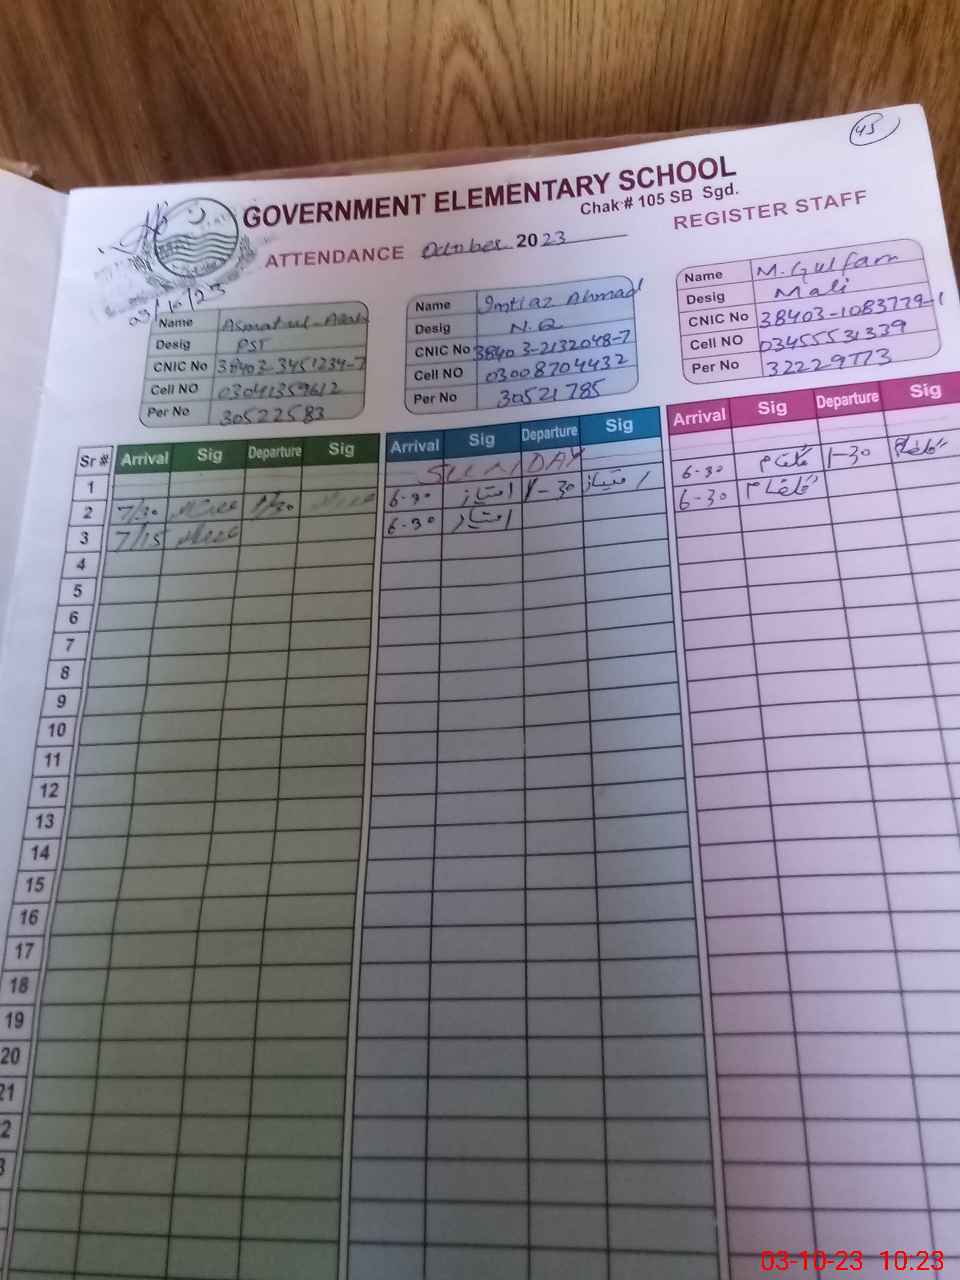 45
GOVERNMENT ELEMENTARY SCHOOL
Chak # 105 SB Sgd.
ATTENDANCE October 2023
REGISTER STAFF
03/10/23
Name Asmat ul-Allah
Desig PST
CNIC No 38403-3451234-7
Cell NO 03041359612
Per No 30522583
Name Imtiaz Ahmad
Desig N.Q
CNIC No 38403-2132048-7
Cell NO 03008704432
Per No 30521785
Name M. Gulfam
Desig Mali
CNIC No 38403-1083779-1
Cell NO 03455531339
Per No 32229773
Sr # Arrival Sig Departure Sig Arrival Sig Departure Sig Arrival Sig Departure Sig
1 SUNDAY
2 7/30 1/30 6-30 امتیاز 1-30 امتیاز 6-30 گلفام 1-30 گلفام
3 7/15 6-30 امتیاز 6-30 گلفام
4
5
6
7
8
9
10
11
12
13
14
15
16
17
18
19
20
21
2
3
03-10-23 10:23